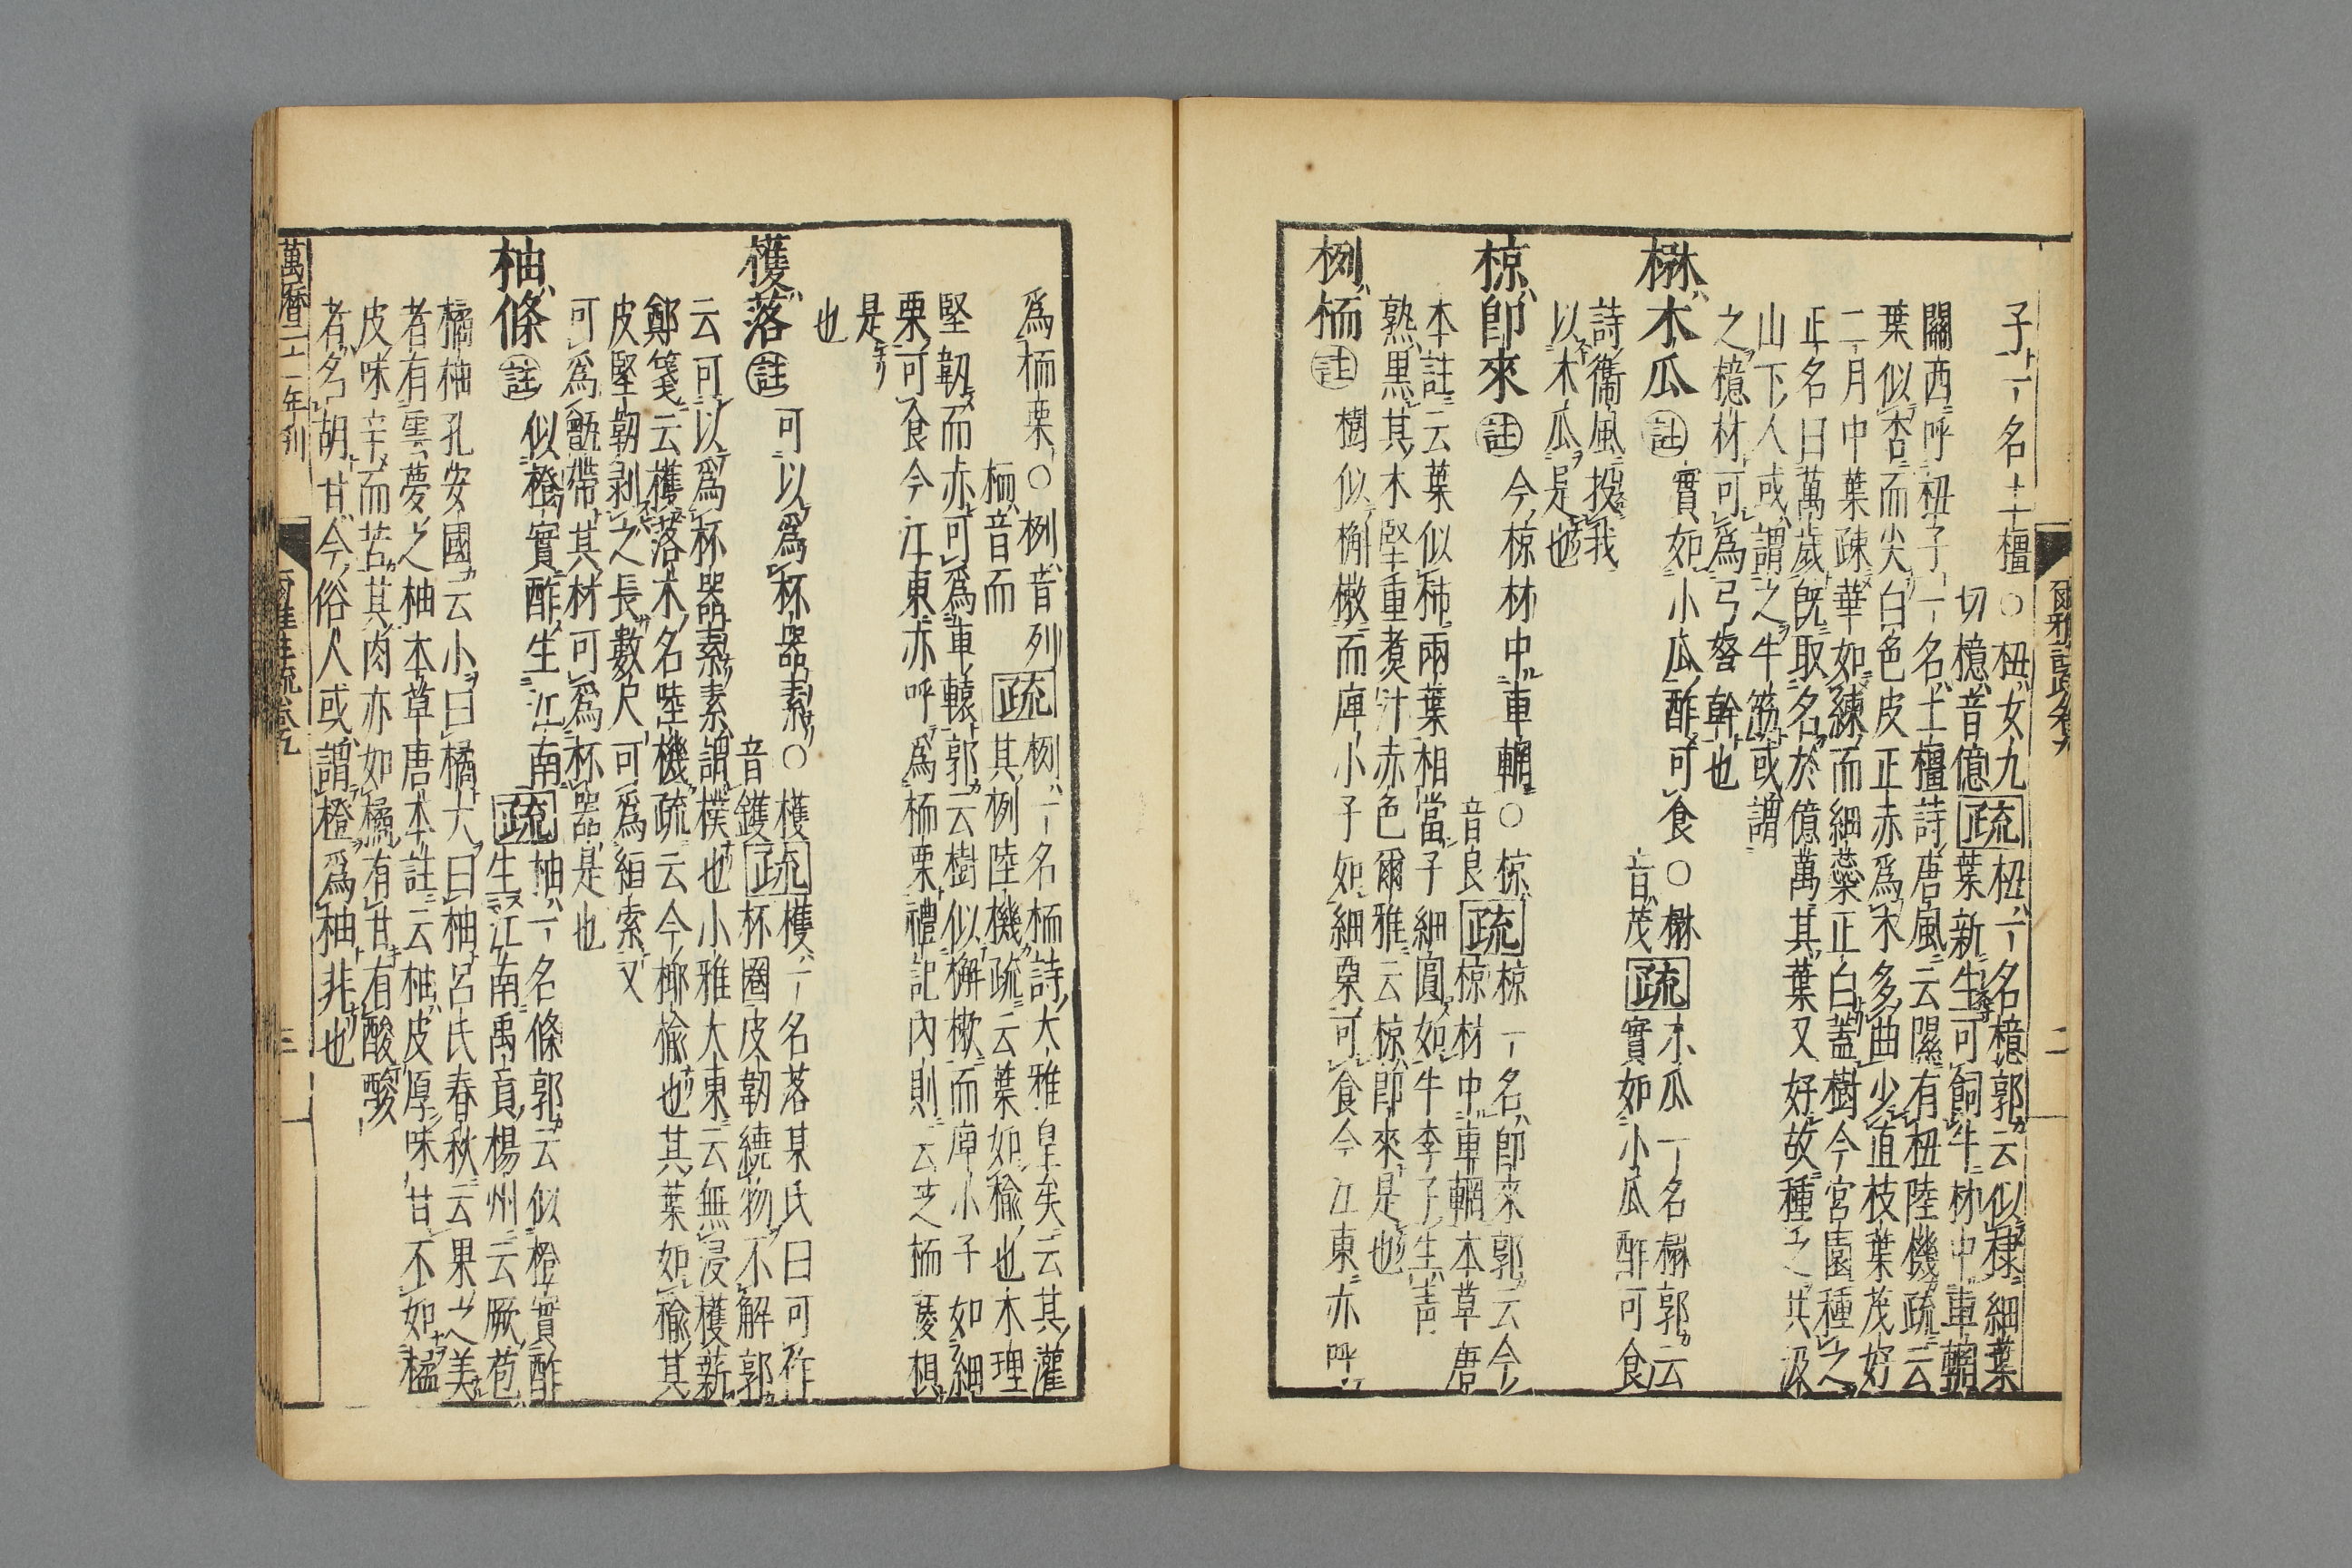 子一名土橿○杻女九切檍音億疏杻一名檍郭云似棣細葉葉新生可飼牛材中車輞
關西呼杻子一名土橿詩唐風云隰有杻陸機疏云
葉似杏而尖白色皮正赤爲木多曲少直枝葉茂好
二月中葉疎華如練而細蘂正白蓋樹今宮園種之
正名曰萬歲旣取名於億萬其葉又好故種之共汲
山下人或謂之牛筋或謂
之檍材可爲弓弩幹也
楙木瓜註實如小瓜酢可食○楙音茂疏木瓜一名楙郭云實如小瓜酢可食
詩衞風投我
以木瓜是也
椋卽來註今椋材中車輞○椋音良疏椋一名卽來郭云今椋材中車輞本草唐
本註云葉似柿兩葉相當子細圓如牛李子生靑
熟黑其木堅重煑汁赤色爾雅云椋卽來是也
栵栭註樹似槲樕而庳小子如細栗可食今江東亦呼
爾雅註疏卷九
二
爲栭栗○栵音列栭音而疏栵一名栭詩大雅皇矣云其灌其栵陸機疏云葉如楡也木理
堅韌而赤可爲車轅郭云樹似槲樕而庳小子如細
栗可食今江東亦呼爲栭栗禮記內則云芝栭蔆椇
是
也
檴落註可以爲杯器素○檴音鑊疏檴一名落某氏曰可作杯圈皮韌繞物不解郭
云可以爲杯器素素謂樸也小雅大東云無浸檴薪
鄭箋云檴落木名陸機疏云今梛楡也其葉如楡其
皮堅韌剥之長數尺可爲絙索又
可爲甑帶其材可爲杯器是也
柚條註似橙實酢生江南疏柚一名條郭云似橙實酢生江南禹貢楊州云厥苞
橘柚孔安國云小曰橘大曰柚呂氏春秋云果之美
者有雲夢之柚本草唐本註云柚皮厚味甘不如橘
皮味辛而苦其肉亦如橘有甘有酸酸
者名胡甘今俗人或謂橙爲柚非也
萬曆二十一年刋
爾雅註疏卷五
三